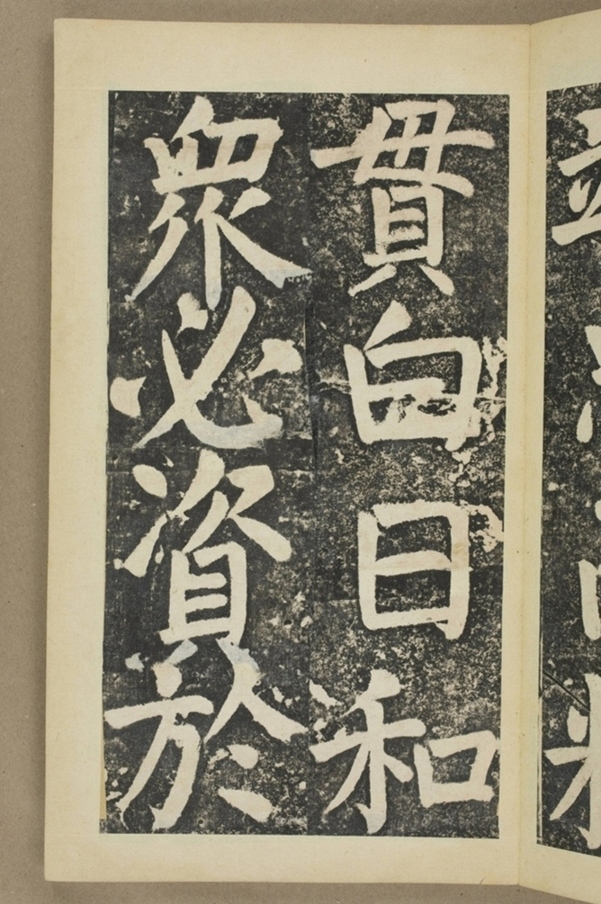 貫白日和
衆必資於